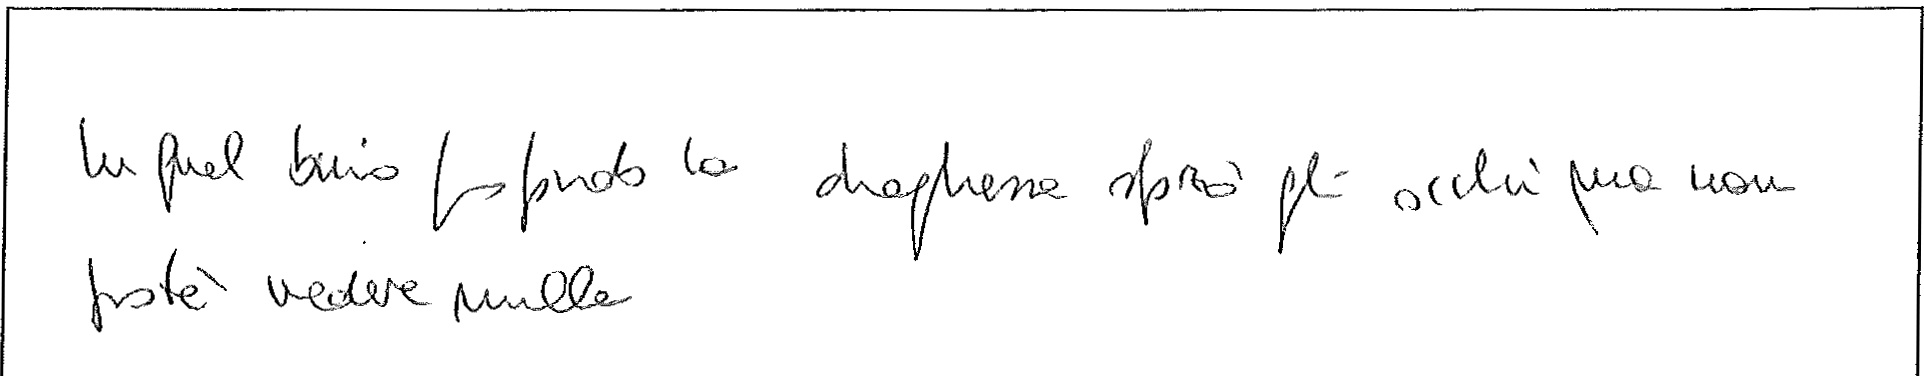 In quel buio profondo la draghessa sforzò gli occhi ma non
poté vedere nulla